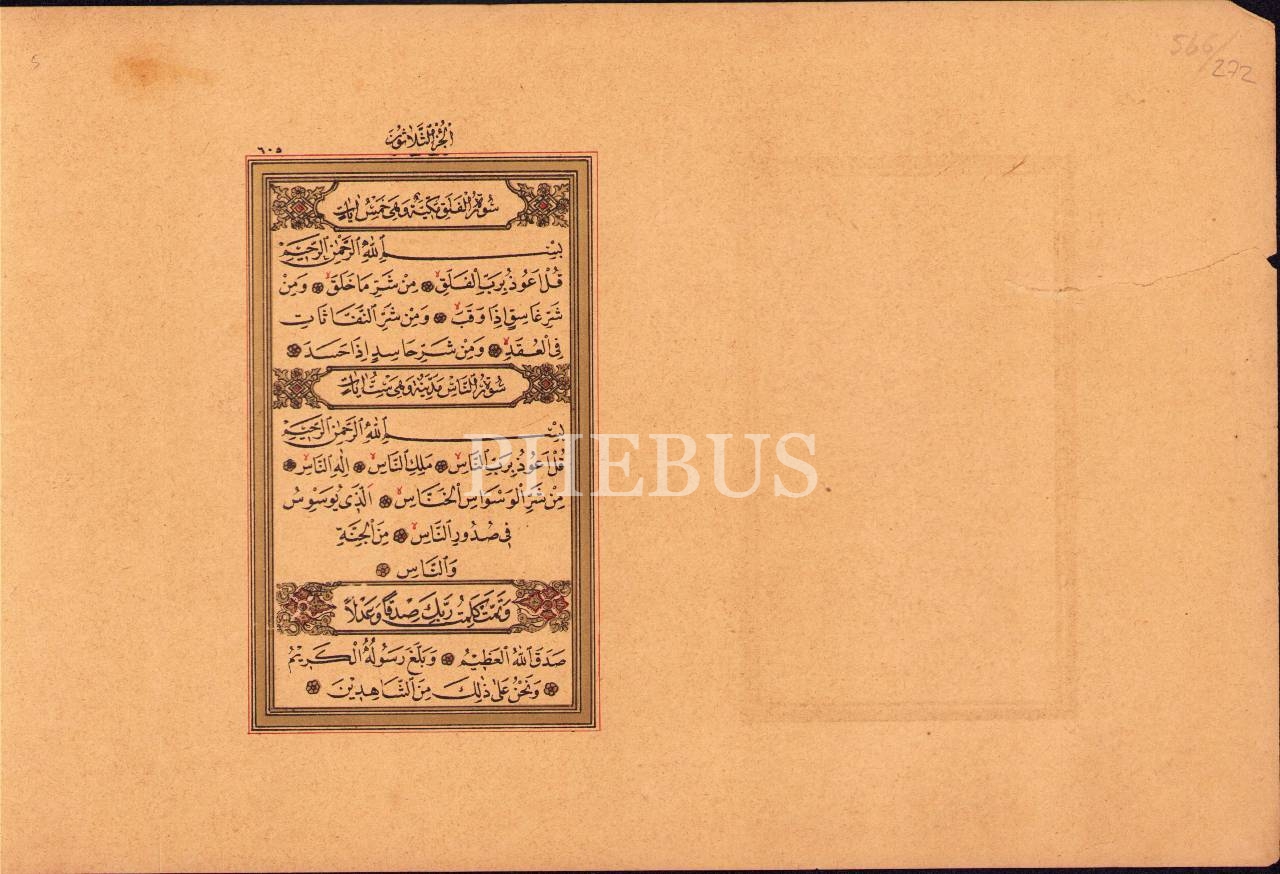 5
566/272
الجزء الثلاثون
٦٠٥
سورة الفلق مكية وهي خمس ايات
بِسْمِ اللّٰهِ الرَّحْمٰنِ الرَّحِيمِ
قُلْ اَعُوذُ بِرَبِّ الْفَلَقِۙ ۝ مِنْ شَرِّ مَا خَلَقَۙ ۝ وَمِنْ
شَرِّ غَاسِقٍ اِذَا وَقَبَۙ ۝ وَمِنْ شَرِّ النَّفَّاثَاتِ
فِي الْعُقَدِۙ ۝ وَمِنْ شَرِّ حَاسِدٍ اِذَا حَسَدَ ۝
سورة الناس مدنية وهي ست ايات
بِسْمِ اللّٰهِ الرَّحْمٰنِ الرَّحِيمِ
قُلْ اَعُوذُ بِرَبِّ النَّاسِۙ ۝ مَلِكِ النَّاسِۙ ۝ اِلٰهِ النَّاسِۙ ۝
مِنْ شَرِّ الْوَسْوَاسِ الْخَنَّاسِۙ ۝ اَلَّذِي يُوَسْوِسُ
فِي صُدُورِ النَّاسِۙ ۝ مِنَ الْجِنَّةِ
وَالنَّاسِ ۝
وَتَمَّتْ كَلِمَتُ رَبِّكَ صِدْقًا وَعَدْلًا
صَدَقَ اللّٰهُ الْعَظِيمُ ۝ وَبَلَّغَ رَسُولُهُ الْكَرِيمُ
۝ وَنَحْنُ عَلٰى ذٰلِكَ مِنَ الشَّاهِدِينَ ۝
PHEBUS